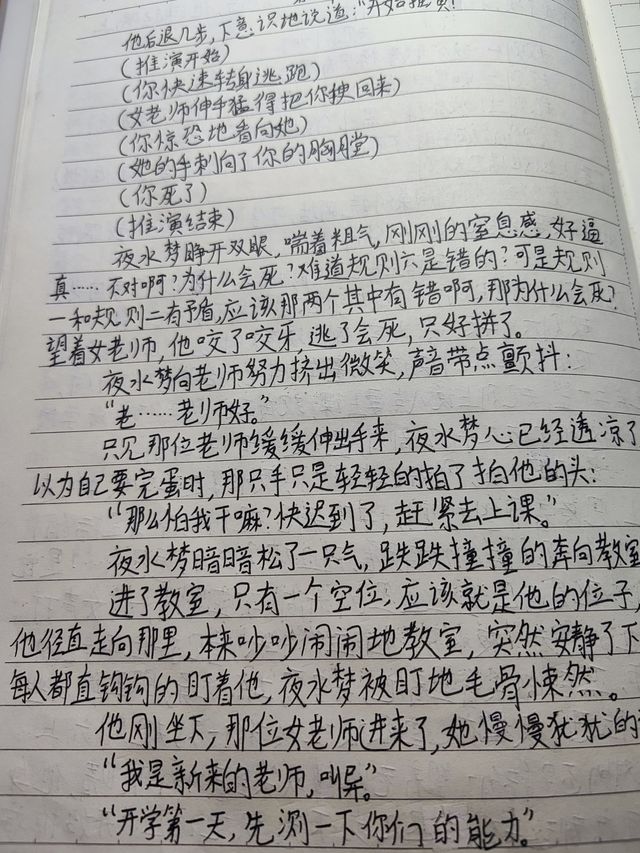 他后退几步,下意识地说道:"开始推演!
(推演开始)
(你快速转身逃跑)
(女老师伸手猛得把你拽回来)
(你惊恐地看向她)
(她的手刺向了你的胸膛)
(你死了)
(推演结束)
夜水梦睁开双眼,喘着粗气,刚刚的窒息感,好逼
真……不对啊?为什么会死?难道规则六是错的?可是规则
一和规则二有矛盾,应该那两个其中有错啊,那为什么会死?
望着女老师,他咬了咬牙,逃了会死,只好拼了。
夜水梦向老师努力挤出微笑,声音带点颤抖:
"老……老师好。"
只见那位老师缓缓伸出手来,夜水梦心已经透凉了
以为自己要完蛋时,那只手只是轻轻的拍了拍他的头:
"那么怕我干嘛?快迟到了,赶紧去上课。"
夜水梦暗暗松了一口气,跌跌撞撞的奔向教室
进了教室,只有一个空位,应该就是他的位子,
他径直走向那里,本来吵吵闹闹地教室,突然安静了下
每人都直钩钩的盯着他,夜水梦被盯地毛骨悚然。
他刚坐下,那位女老师进来了,她慢慢犹犹的
"我是新来的老师,叫杲。"
"开学第一天,先测一下你们的能力。"